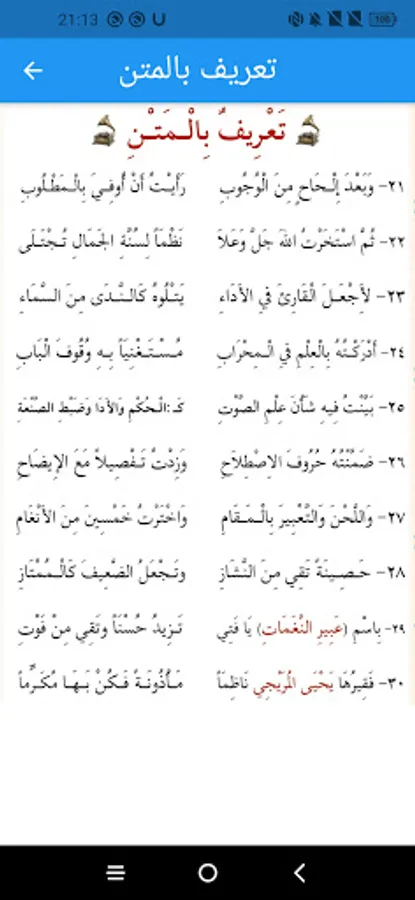 21:13
100
تعريف بالمتن
تَعْرِيفٌ بِالْـمَتْـنِ
٢١- وَبَعْدَ إِلْـحَاحٍ مِنَ الْوُجُوبِ رَأَيْـتُ أَنْ أُوفِـيَ بِالْـمَطْـلُوبِ
٢٢- ثُمَّ اسْتَخَرْتُ اللهَ جَلَّ وَعَلَا نَظْمَاً لِسُنَّةِ الجَمَالِ تُـجْتَـلَى
٢٣- لأَجْعَـلَ الْقَارِئَ فِي الأَدَاءِ يَتْـلُوهُ كَالنَّـدَى مِـنَ السَّمَاءِ
٢٤- أَدْرَكْـتُهُ بِالْعِلْمِ فِي الْـمِحْرَابِ مُـسْـتَـغْنِيَاً بِـهِ وُقُوفَ الْبَابِ
٢٥- بَيَّنْتُ فِيهِ شَأْنَ عِلْمِ الصَّوْتِ كَـ:الْـحُكْمِ وَالأَدَا وَضَبْطِ الصَّنْعَةِ
٢٦- ضَمَّنْتُهُ حُرُوفَ الاِصْطِلَاحِ وَزِدْتُ تَـفْصِيلاً مَعَ الإِيضَاحِ
٢٧- وَاللَّحْنَ وَالتَّعْبِيرَ بِالْـمَـقَامِ وَاخْتَرْتُ خَمْسِينَ مِنَ الأَنْغَامِ
٢٨- حَـصِـيـنَةً تَقِي مِنَ النَّشَازِ وَتَجْعَلُ الضَّعِيفَ كَالْـمُمْتَازِ
٢٩- بِاسْمِ (عَبِيرِ النَّغَمَاتِ) يَا فَتِي تَـزِيدُ حُسْنَاً وَتَقِي مِنْ فَوْتِ
٣٠- فَقِيرُهَا يَحْيَى الْمُرَيْجِي نَاظِمَاً مَـأْذُونَـةً فَـكُنْ بِـهَـا مُكَـرِّمَاً